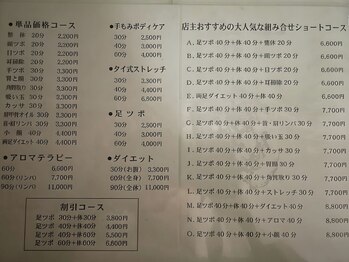 ●単品価格コース
整体 20分 2,200円
頭ツボ 20分 2,200円
目ツボ 20分 2,200円
耳掃除 20分 2,200円
手ツボ 20分
胃と腸 30分 3,300円
角質取り 30分 3,300円
吸い玉 30分 3,300円
カッサ 30分 3,300円
30分 3,300円
首・肩リンパ 30分 3,300円
小顔 40分 4,400円
両足ダイエット 40分 4,400円
●アロマテラピー
60分 6,600円
60分(リンパ) 7,700円
90分(リンパ) 11,000円
●手もみボディケア
30分 2,500円
40分 3,400円
60分
●タイ式ストレッチ
30分 3,400円
40分 4,400円
60分 6,600円
●足ツボ
30分
40分 3,400円
60分
●ダイエット
30分(お腹) 3,300円
60分(全身) 7,700円
90分(全体) 11,000円
割引コース
足ツボ 30分+体30分 3,800円
足ツボ 40分+体40分 4,400円
足ツボ 40分+体60分 5,500円
足ツボ 60分+体60分 6,800円
店主おすすめの大人気な組み合せショートコース
A. 足ツボ40分+体40分+整体20分 6,600円
B. 足ツボ40分+体40分+頭ツボ 6,600円
C. 足ツボ40分+体40分+目ツボ 6,600円
D. 足ツボ40分+体40分+耳掃除
E. 両足ダイエット40分+体40分
F. 足ツボ40分+体40分+手ツボ30分 7,700円
G. 足ツボ40分+体40分+首・肩リンパ30分
H. 足ツボ40分+体40分+吸い玉30分 7,700円
I. 足ツボ40分+体40分+カッサ30分 7,700円
J. 足ツボ40分+体40分+胃腸30分 7,700円
K. 足ツボ40分+体40分+角質取り30分 7,700円
L. 足ツボ40分+体40分+ストレッチ30分 7,700円
M. 足ツボ40分+体40分+ダイエット40分 8,800円
N. 足ツボ40分+体40分+アロマ40分 8,800円
O. 足ツボ40分+体40分+小顔40分 8,800円